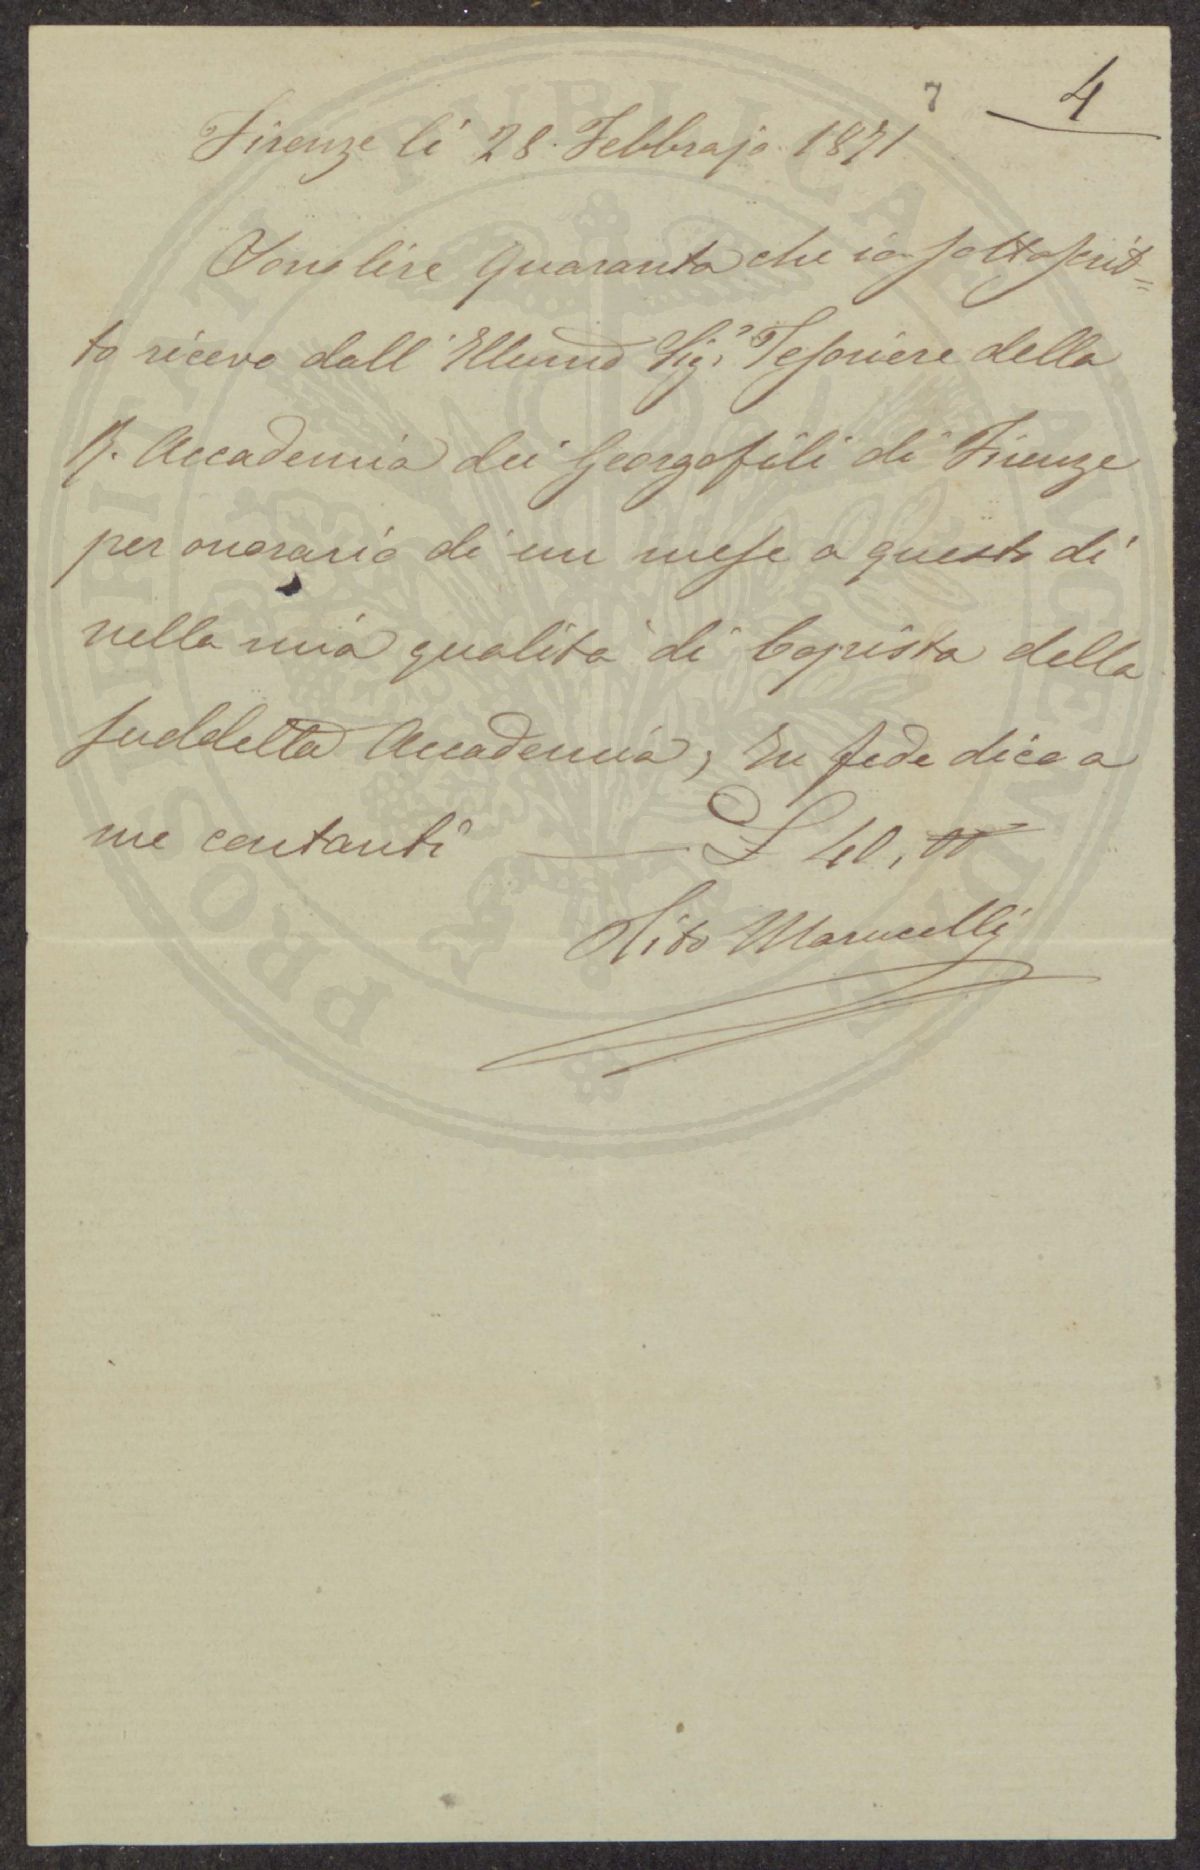 7 4
Firenze lì 28. Febbrajo 1871
Sono lire Quaranta che io sottoscrit=
to ricevo dall' Illumo Sigr Tesoriere della
R. Accademia dei Georgofili di Firenze
per onorario di un mese a questo dì
nella mia qualità di Copista della
suddetta Accademia, In fede dico a
me contanti — £ 40, 00
Tito Marucelli
PROSPERITATI PVBLICAE AVGENDAE